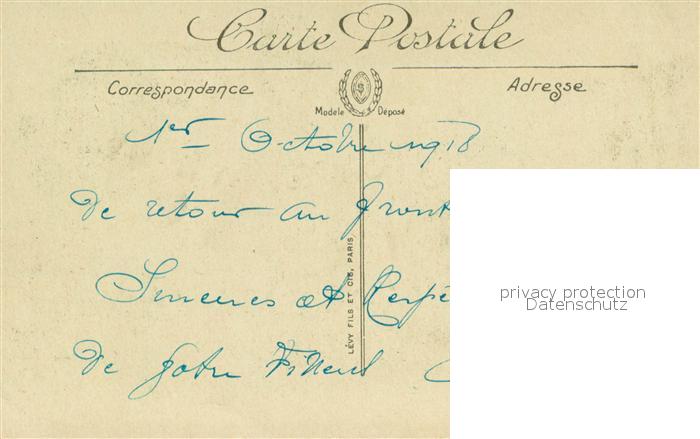 Carte Postale
Correspondance
Adresse
Modèle Déposé
1er Octobre 1918
De retour au Front
Sinceres et Respe
De Votre Filleul
LÉVY FILS ET CIE, PARIS
privacy protection
Datenschutz